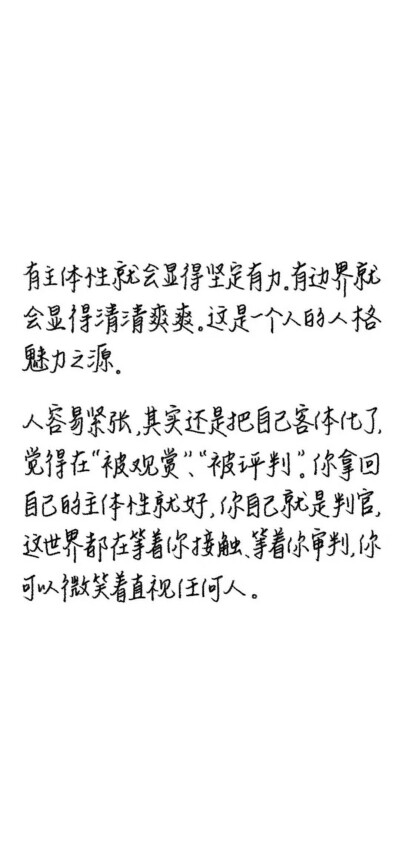 有主体性就会显得坚定有力。有边界就
会显得清清爽爽。这是一个人的人格
魅力之源。
人容易紧张,其实还是把自己客体化了,
觉得在“被观赏”、“被评判”。你拿回
自己的主体性就好,你自己就是判官,
这世界都在等着你接触、等着你审判,你
可以微笑着直视任何人。